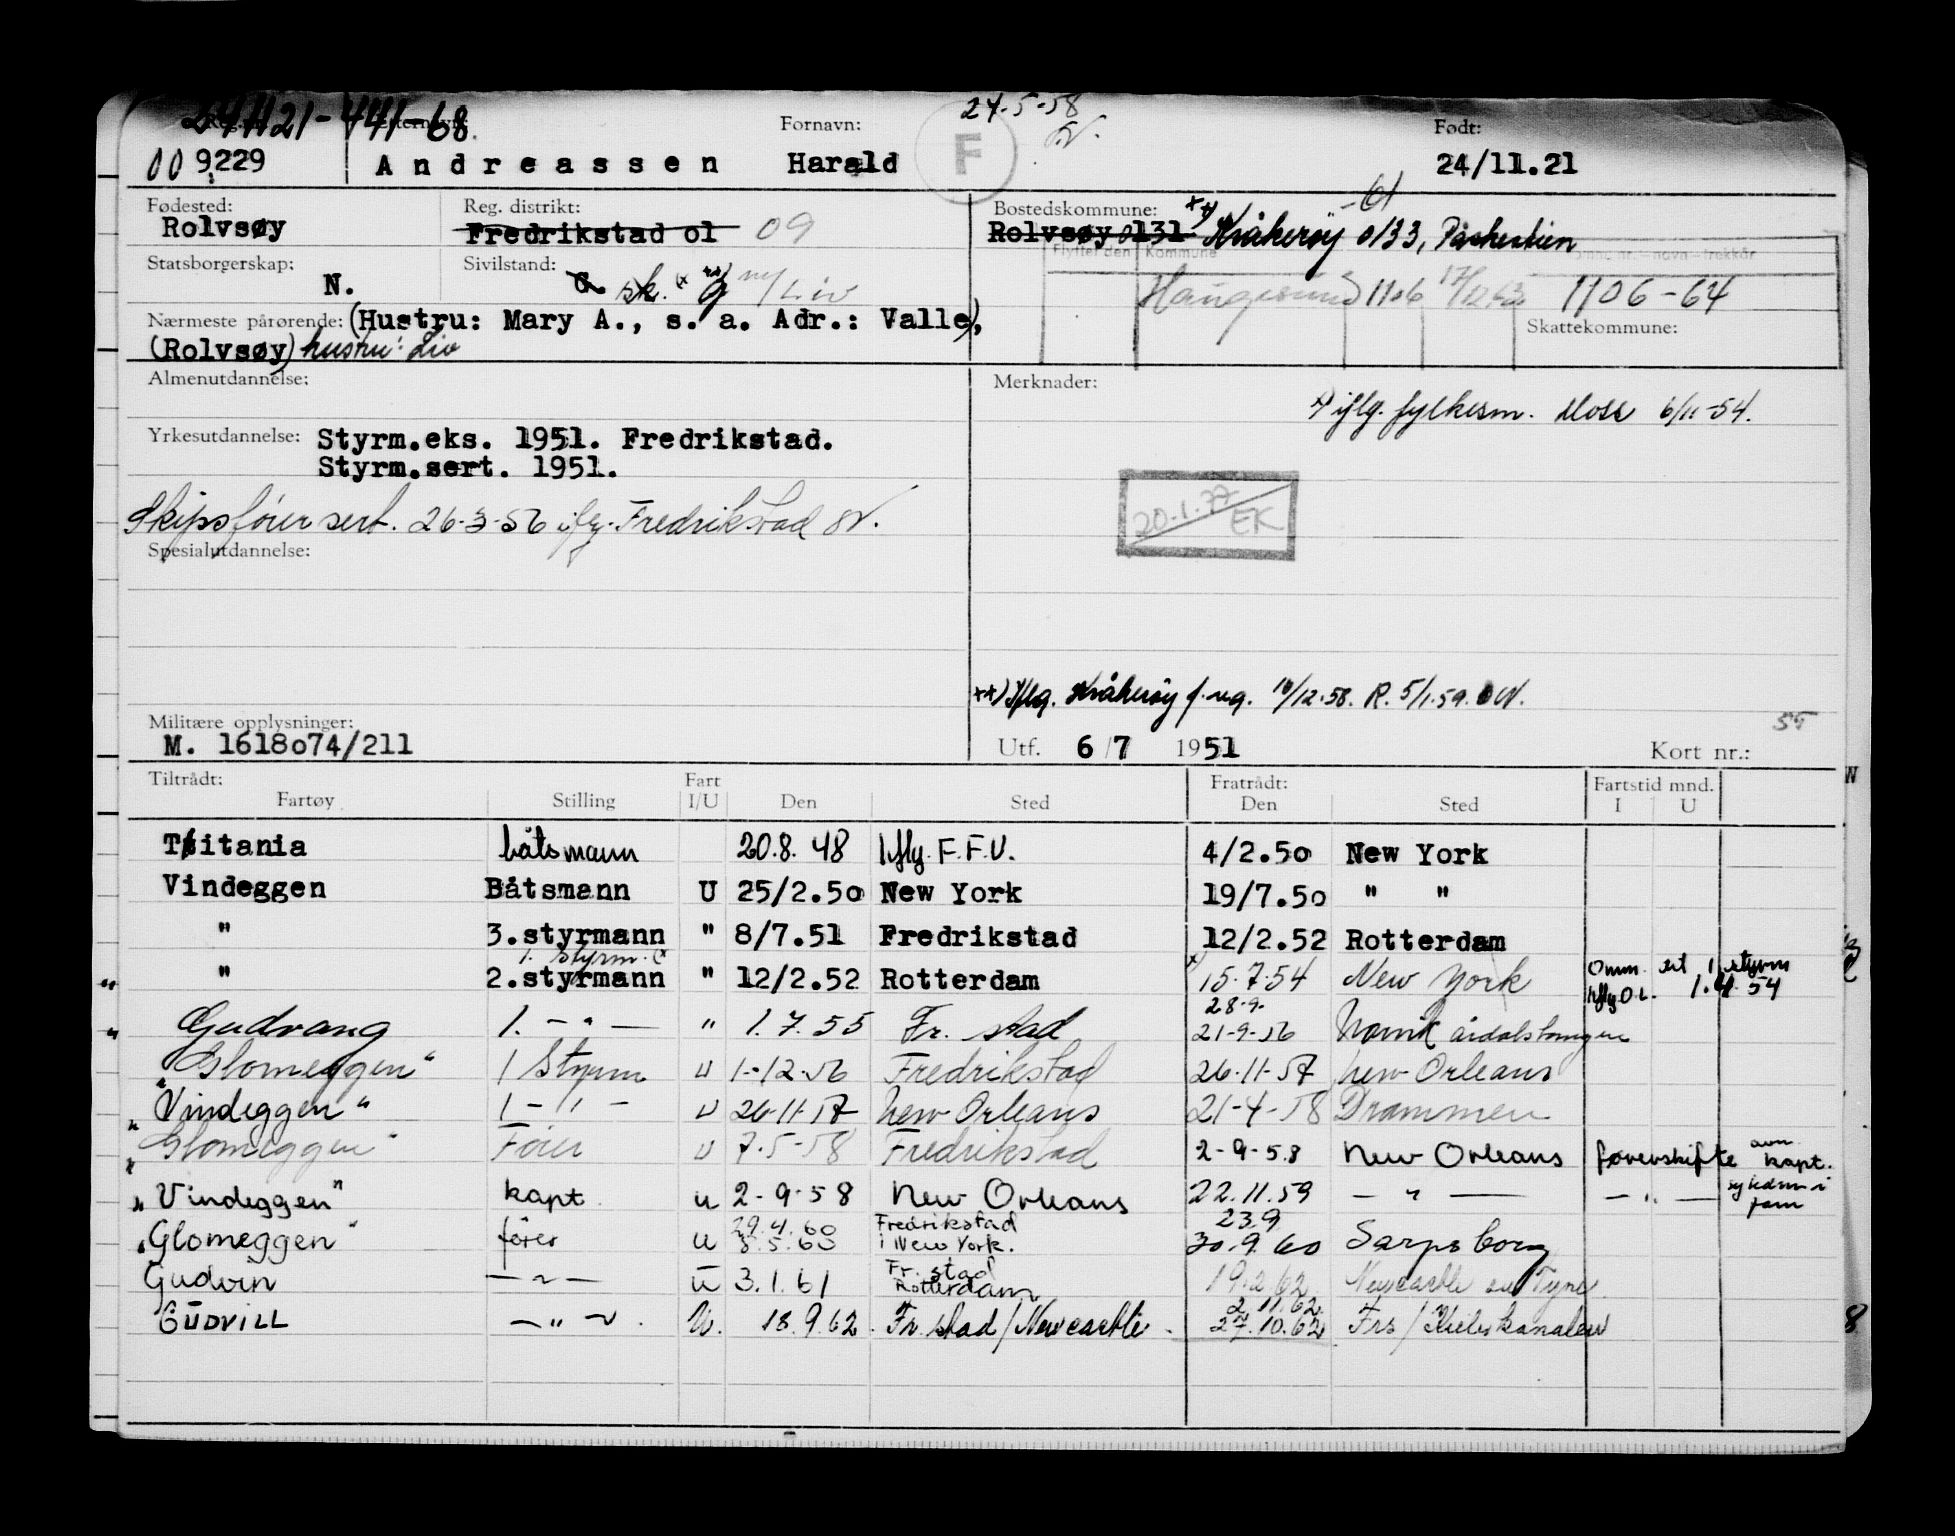 241121-441-68. Fornavn: 24-5-58 Født:
00 9229 Andreassen Harald F 24/11.21
Fødested: Reg. distrikt: Bostedskommune: -61
Rolvsøy Fredrikstad o1 09 Rolvsøy 0131 xx) Kråkerøy 0133,
Flyttet den Kommune
Statsborgerskap: Sivilstand:
N. G sk. (x g ny/Liv Haugesund 1106 17/12.63 1106-64
Nærmeste pårørende: (Hustru: Mary A., s. a. Adr.: Valle), Skattekommune:
(Rolvsøy) hustru: Liv
Almenutdannelse: Merknader:
x) iflg. fylkesm. Moss 6/11-54.
Yrkesutdannelse: Styrm.eks. 1951. Fredrikstad.
Styrm.sert. 1951.
Skipsfører sert. 26-3-56 ifg. Fredrikstad
20-1.77 EK
Spesialutdannelse:
xx) Iflg. Kråkerøy f.reg. 10/12-58. R. 5/1.59.
Militære opplysninger: 55
M. 1618o74/211 Utf. 6/7 1951 Kort nr.:
Tiltrådt: Fart Fratrådt: Fartstid mnd.
Fartøy Stilling I/U Den Sted Den Sted I U
Tøitania båtsmann 20.8. 48 Iflg. F.F.U. 4/2.5o New York
Vindeggen Båtsmann U 25/2.5o New York 19/7.5o " "
" 3.styrmann " 8/7.51 Fredrikstad 12/2.52 Rotterdam
1. styrm. (x
" 2.styrmann " 12/2.52 Rotterdam x) 15.7.54 New York Omm. 1 styrm
Iflg O.L. 1.4.54
28.9.
"Gudvang 1. - " - " 1.7.55 Fr. stad 21-9-56 Årdalstangen
"Glomeggen" 1 Styrm U 1-12-56 Fredrikstad 26-11-57 New Orleans
"Vindeggen" 1 - " - U 26-11-57 New Orleans 21-4-58 Drammen
"Glomeggen" Fører U 7-5-58 Fredrikstad 2-9-58 New Orleans førerskifte kapt.
"Vindeggen" kapt. u 2-9-58 New Orleans 22.11.59 - " - - " - sykdom i fam
29.4.60 Fredrikstad 23.9
"Glomeggen" fører u 8.5.60 i New York. 30.9.60 Sarpsborg
Fr. stad
Gudvin - " - u 3.1.61 Rotterdam 19.2.62 Newcastle on Tyne.
2.11.62
GUDVILL - " - U. 18.9.62. Fr. stad / Newcastle. 27.10.62 Frs / Kielerkanalen